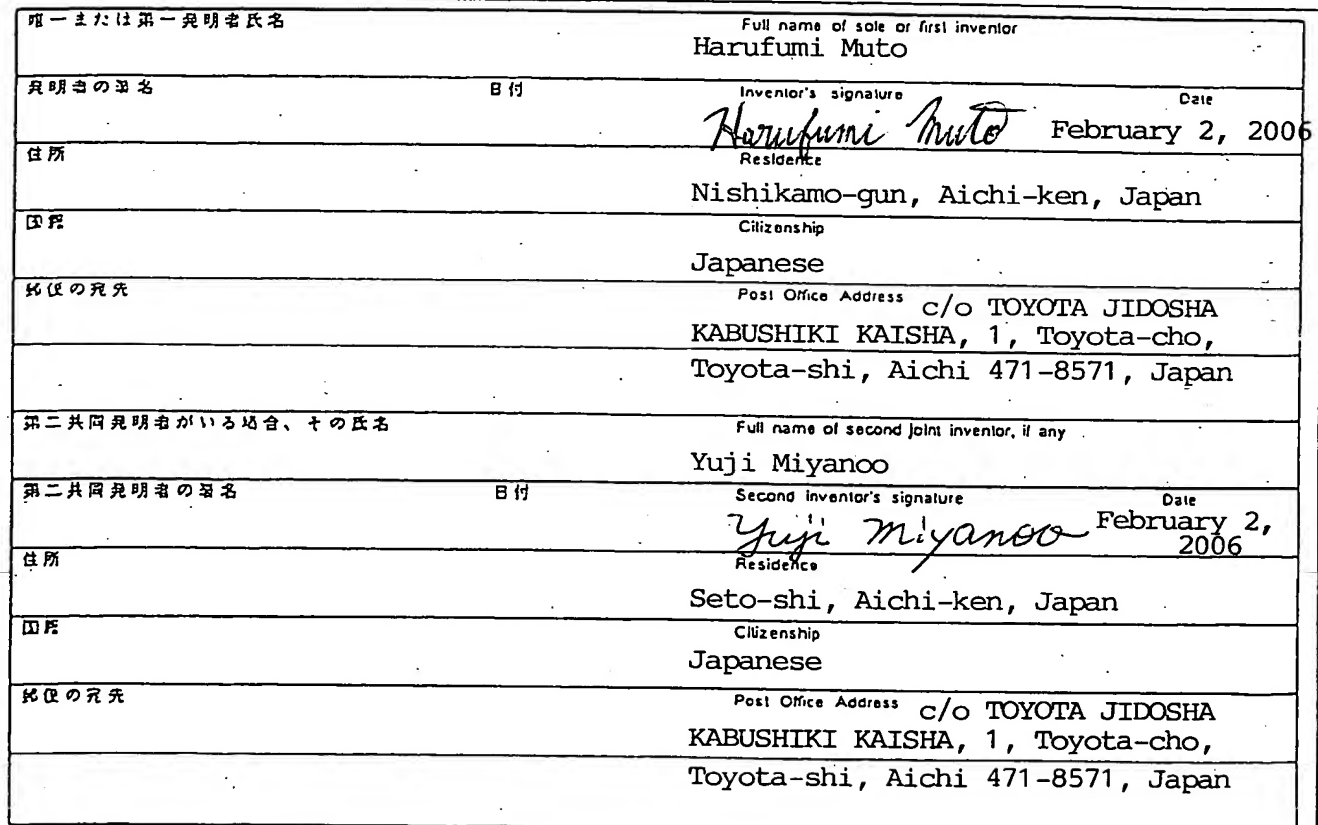 唯一または第一発明者氏名 Full name of sole or first inventor
Harufumi Muto
発明者の署名 日付 Inventor's signature Date
Harufumi Muto February 2, 2006
住所 Residence
Nishikamo-gun, Aichi-ken, Japan
国籍 Citizenship
Japanese
郵便の宛先 Post Office Address c/o TOYOTA JIDOSHA
KABUSHIKI KAISHA, 1, Toyota-cho,
Toyota-shi, Aichi 471-8571, Japan
第二共同発明者がいる場合、その氏名 Full name of second joint inventor, if any
Yuji Miyanoo
第二共同発明者の署名 日付 Second inventor's signature Date
Yuji Miyanoo February 2,
2006
住所 Residence
Seto-shi, Aichi-ken, Japan
国籍 Citizenship
Japanese
郵便の宛先 Post Office Address c/o TOYOTA JIDOSHA
KABUSHIKI KAISHA, 1, Toyota-cho,
Toyota-shi, Aichi 471-8571, Japan